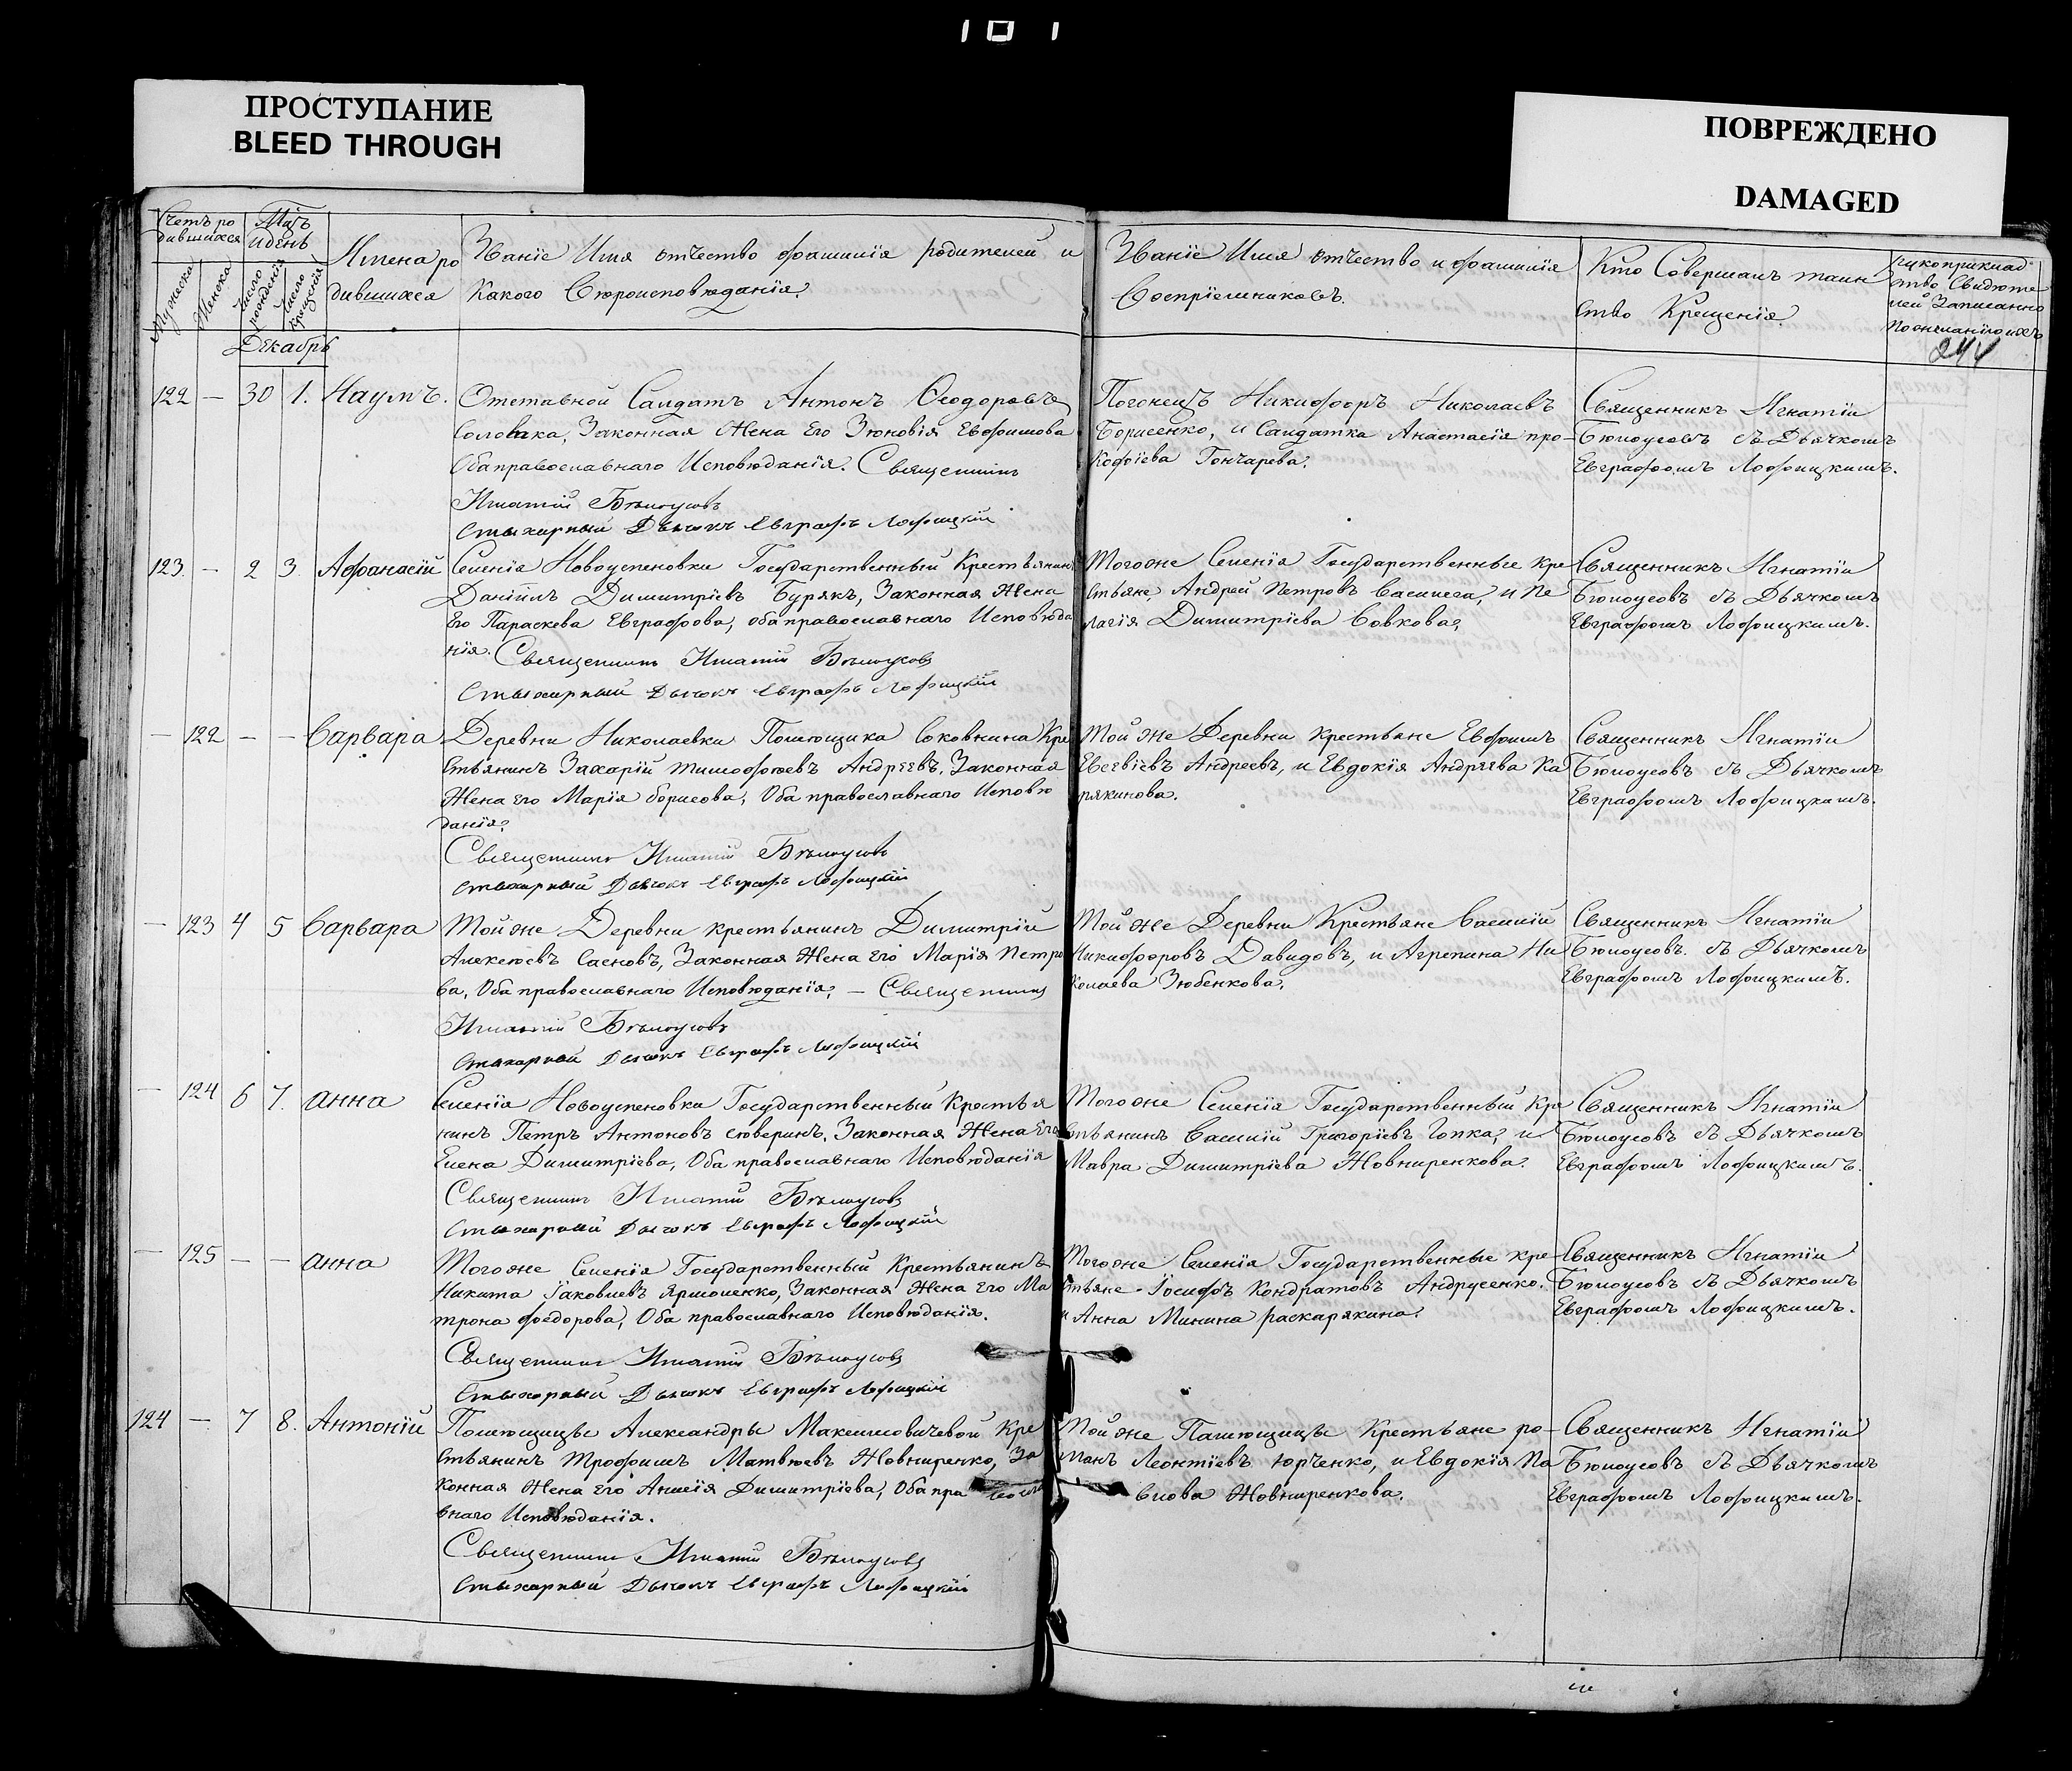 101
ПРОСТУПАНИЕ
BLEED THROUGH
ПОВРЕЖДЕНО
DAMAGED
Счетъ ро
дившихся
Мужеска
Женска
Мцъ
и день
Число рожденія
Число крещенія
Декабрь
Имена ро
дившихся
Званіе Имя отчество фамилія родителей и
какого вероисповѣданія.
Званіе Имя отчество и фамилія
Воспріемниковъ.
Кто Совершалъ таин
ство Крещенія.
Рукоприклад
ство Свидѣте
лей Записанно
по желанію ихъ
244
122 — 30 1. Наумъ.
Отставной Салдатъ Антонъ Ѳеодоровъ
Соловка, Законная Жена Его Зѣновія Евфимова
Оба православнаго Исповѣданія. Священникъ
Игнатій Бѣлоусовъ
Стихарный Дьячокъ Евграфъ Лофицкій
Погонецъ Никифоръ Николаевъ
Борисенко, и Салдатка Анастасія про-
кофіева Гончарева.
Священникъ Игнатіи
Бѣлоусовъ съ Дьячкомъ
Евграфомъ Лофицкимъ.
123. — 2 3. Афанасій
Селенія Новоуспеновки Государственный Крестьянинъ
Даніилъ Димитріевъ Бурякъ, Законная Жена
Его Параскева Евграфова, оба православнаго Исповѣда
нія. Священникъ Игнатій Бѣлоусовъ
Стихарный Дьячокъ Евграфъ Лофицкій
Того же Селенія Государственные кре
стьяне Андрей Петровъ Василега, и Пе
лагія Димитріева Вовкова,
Священникъ Игнатіи
Бѣлоусовъ съ Дьячкомъ
Евграфомъ Лофицкимъ.
— 122 — — Варвара
Деревни Николаевки Помѣщика Соковнина Кре
стьянинъ Захарій тимофѣевъ Андреевъ, Законная
Жена его Марія борисова, Оба православнаго Исповѣ
данія,
Священникъ Игнатій Бѣлоусовъ
стихарный Дьячокъ Евграфъ Лофицкій
Той же Деревни крестьяне Евфимъ
Евсевіевъ Андреевъ, и Евдокія Андреева Ка
рякинова.
Священникъ Игнатіи
Бѣлоусовъ съ Дьячкомъ
Евграфомъ Лофицкимъ.
— 123 4 5 Варвара
Той же Деревни крестьянинъ Димитрій
Алексѣевъ Сасновъ, Законная Жена Его Марія Петро
ва, Оба православнаго Исповѣданія, — Священникъ
Игнатій Бѣлоусовъ
Стихарный Дьячокъ Евграфъ Лофицкій
Той же Деревни Крестьяне Василій
Никифоровъ Давидовъ, и Агрепина Ни
колаева Зюбенкова,
Священникъ Игнатіи
Бѣлоусовъ. съ Дьячкомъ
Евграфомъ Лофицкимъ.
— 124 6 7. анна
Селенія Новоуспеновки Государственный Крестья
нинъ Петръ Антоновъ сѣверинъ, Законная Жена Его
Елена Димитріева, Оба православнаго Исповѣданія
Священникъ Игнатій Бѣлоусовъ
Стихарный Дьячокъ Евграфъ Лофицкій
Того же Селенія Государственный Кре
стьянинъ Василій Григоріевъ Гопка, и
Мавра Димитріева Жовниренкова.
Священникъ Игнатіи
Бѣлоусовъ съ Дьячкомъ
Евграфомъ Лофицкимъ.
— 125 — — анна
Того же Селенія Государственный Крестьянинъ
Никита Іаковлевъ Ярмоленко, Законная Жена Его Ма
трона федорова, Оба православнаго Исповѣданія.
Священникъ Игнатій Бѣлоусовъ
Стихарный Дьячокъ Евграфъ Лофицкій
Того же Селенія Государственные кре-
стьяне Іосифъ Кондратовъ Андрусенко.
и Анна Минина раскарякина.
Священникъ Игнатіи
Бѣлоусовъ съ Дьячкомъ
Евграфомъ Лофицкимъ.
124 — 7 8. Антоній
Помѣщицы Александры Максимовичевой Кре
стьянинъ трофимъ Матвѣевъ Жовниренко, За
конная Жена его Анисія Димитріева, Оба пра восла
внаго Исповѣданія.
Священникъ Игнатій Бѣлоусовъ
Стихарный Дьячокъ Евграфъ Лофицкій
Той же Памѣщицы Крестьяне ро-
манъ Леонтіевъ юрченко, и Евдокія Па
влова Жовниренкова.
Священникъ Игнатій
Бѣлоусовъ съ Дьячкомъ
Евграфомъ Лофицкимъ.